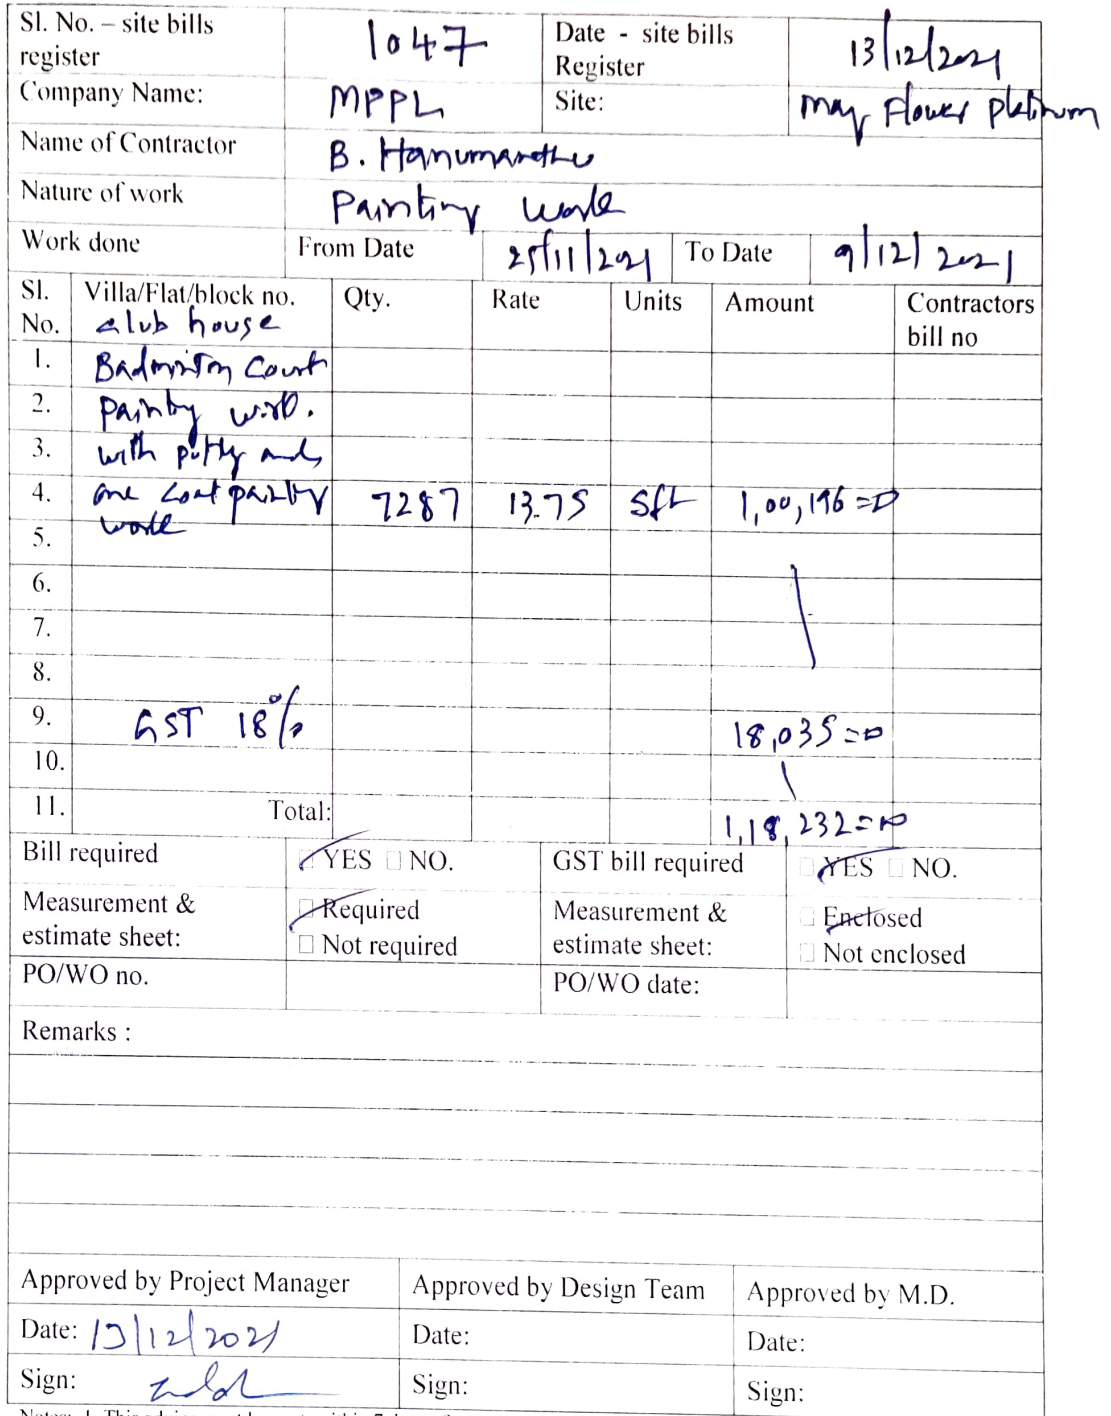 Sl. No. – site bills register 1047 Date - site bills Register 13/12/2021
Company Name: MPPL Site: May Flower platinum
Name of Contractor B. Hanumanthu
Nature of work Painting work
Work done From Date 25/11/2021 To Date 9/12/2021
Sl. No. Villa/Flat/block no. club house Qty. Rate Units Amount Contractors bill no
1. Badminton Court
2. Painting work.
3. with putty and
4. one coat painting 7287 13.75 Sft 1,00,196=0
work
5.
6.
7.
8.
9. GST 18% 18,035=0
10.
11. Total: 1,18,232=0
Bill required YES NO. GST bill required YES NO.
Measurement & estimate sheet: Required Not required Measurement & estimate sheet: Enclosed Not enclosed
PO/WO no. PO/WO date:
Remarks :
Approved by Project Manager Approved by Design Team Approved by M.D.
Date: 13/12/2021 Date: Date:
Sign: Sign: Sign: